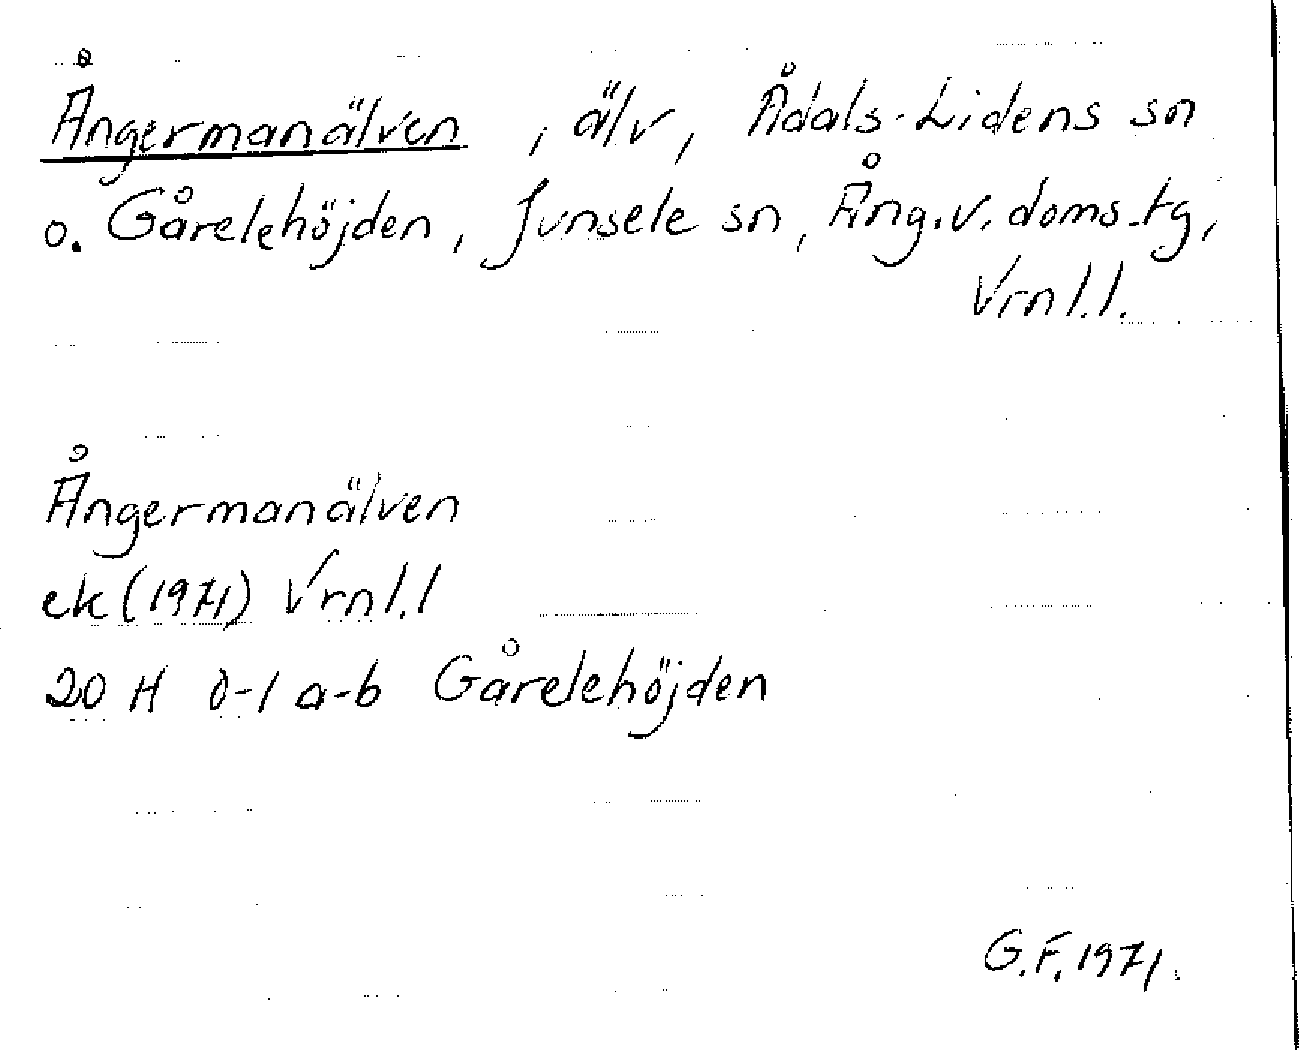 Ångermanälven, älv, Ådals-Lidens sn
o. Gårelehöjden, Junsele sn, Ång.v.doms.tg,
Vrnl.l.
Ångermanälven
ek (1971) Vrnl.l
20 H 0-1 a-b Gårelehöjden
G.F. 1971.